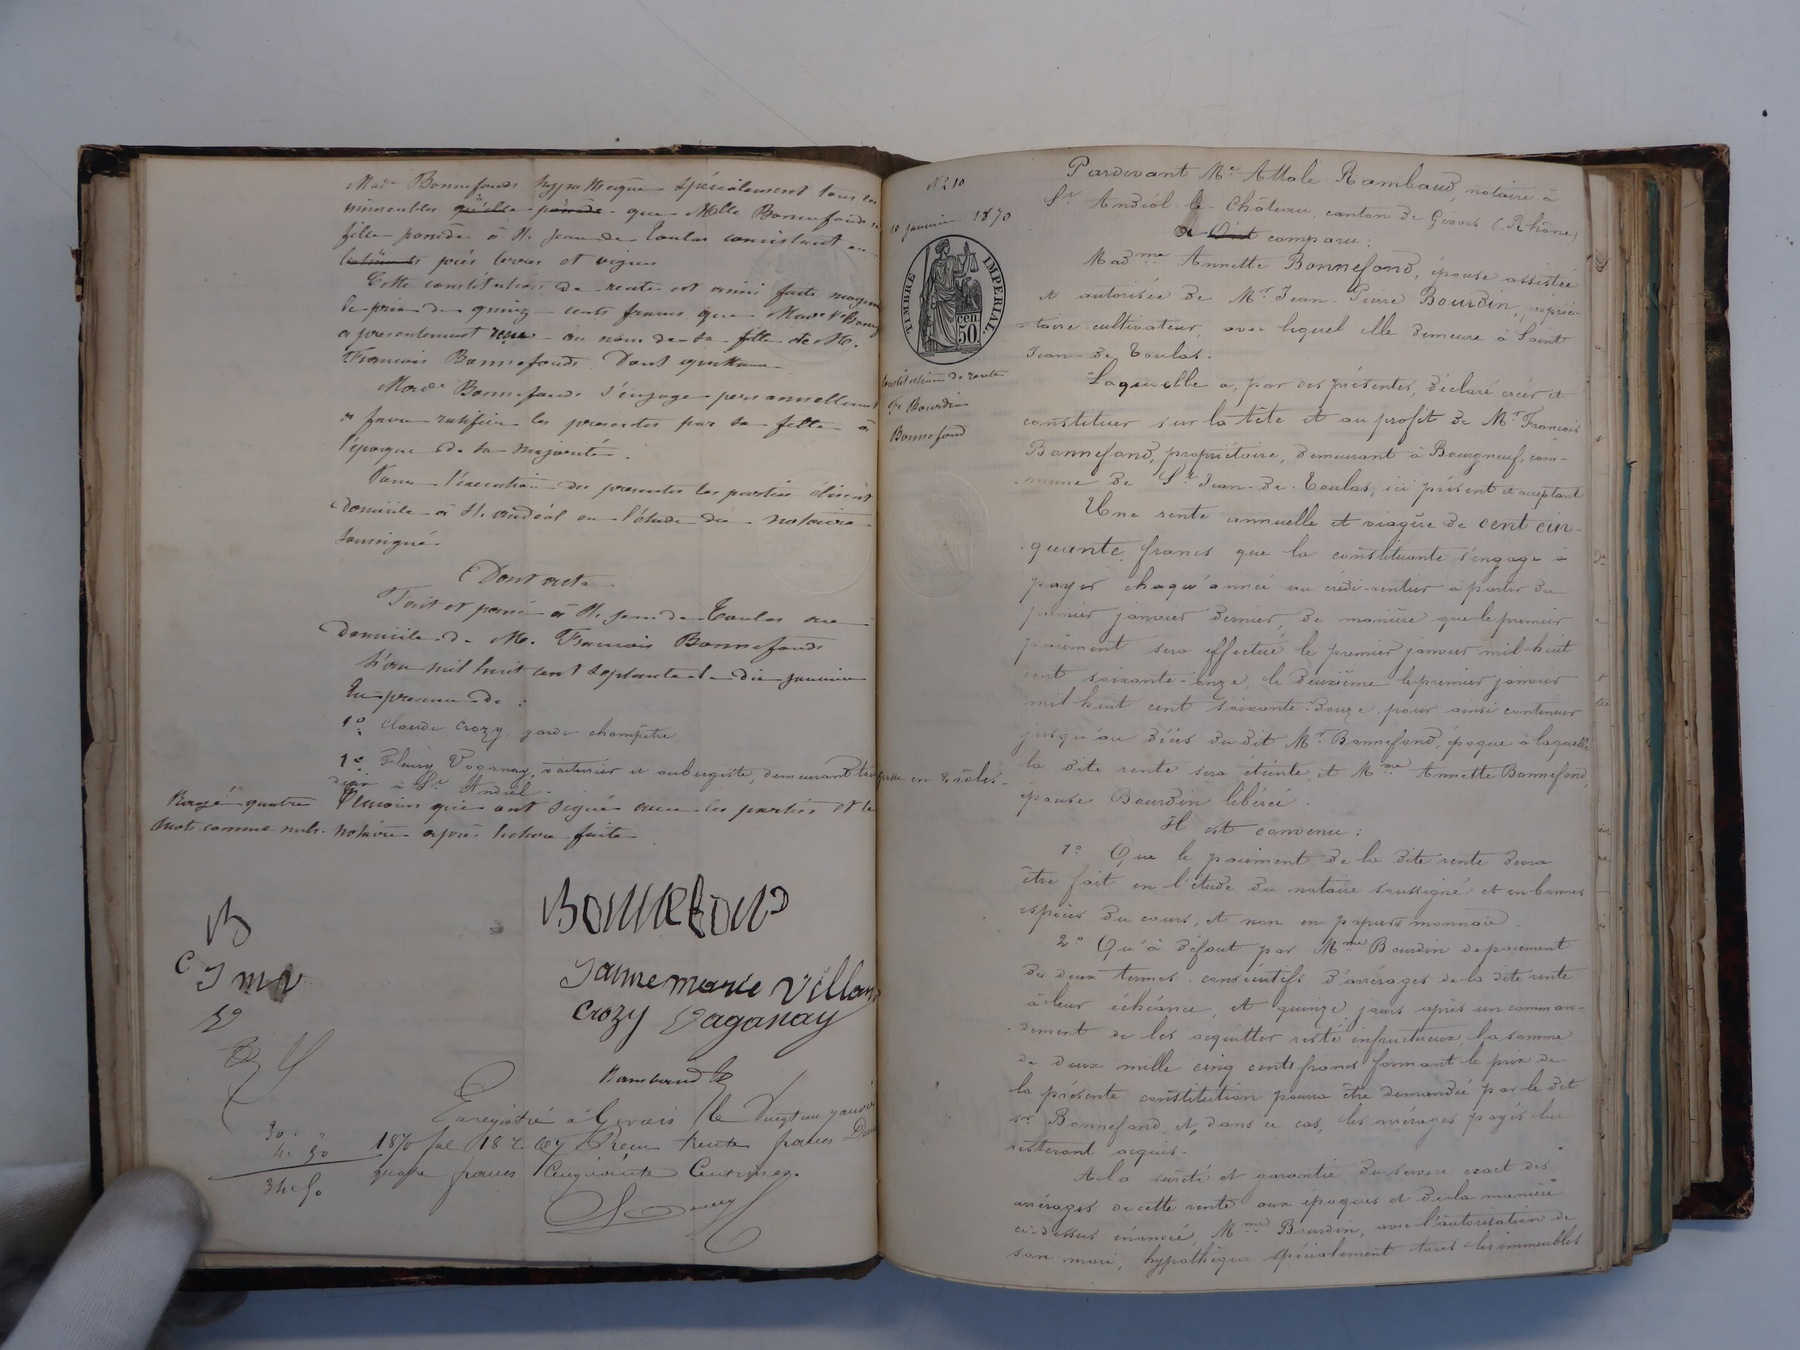 Made Bonnefonds hypothèque spécialement tous les
immeubles qu'elle possède que Melle Bonnefonds sa
fille possède à St Jean de Toulas consistant en
bâtiments prés terres et vignes
Cette constitution de rente est ainsi faite moyennant
le prix de quinze cents francs que Made Ve Bonnefonds
a présentement reçu au nom de sa fille de M.
François Bonnefonds. Dont quittance
Made Bonnefonds s'engage personnellement
à faire ratifier les présentes par sa fille à
l'époque de sa majorité.
Pour l'exécution des présentes les parties élisent
domicile à St andéol en l'étude du notaire
soussigné.
Dont acte
Fait et passé à St Jean de Toulas au
domicile de M. François Bonnefonds
L'an mil huit cent septante le dix janvier
En présence de :
1º Claude Crozy, garde champêtre
1º Fleury Vaganay, voiturier et aubergiste, demeurant
à St Andéol.
Rayé quatre
mots comme nuls.
Témoins qui ont signé avec les parties et le
notaire après lecture faite
Bonnefond
Jeanne marie Villard
Crozy Vaganay
B
C
J m v
Rambaud
Enregistré à Givors le vingt un janvier
1870 fol 18 Reçu trente francs Décime
quatre francs cinquante centimes.
30 "
4. 50
34. 50
Nº 210
10 janvier 1870
TIMBRE IMPERIAL.
50 cen.
Constitution de rente
Fe Bourdin
Bonnefond
Pardevant Me Attale Rambaud, notaire à
St Andéol-le-Château, canton de Givors (Rhône)
a Ont comparu :
Madme Annette Bonnefond, épouse assistée
et autorisée de Mr Jean-Pierre Bourdin, proprié-
taire cultivateur, avec lequel elle demeure à Saint
Jean-de-Toulas.
Laquelle a, par ces présentes, déclaré créer et
constituer sur la tête et au profit de Mr François
Bonnefond, propriétaire, demeurant à Bourgneuf, com-
mune de St Jean-de-Toulas, ici présent et acceptant
Une rente annuelle et viagère de cent cin-
quante francs que la constituante s'engage à
payer chaqu'année au crédi-rentier à partir du
premier janvier dernier, de manière que le premier
paiment sera effectué le premier janvier mil huit
cent soixante-onze, le deuxième le premier janvier
mil huit cent soixante-douze, pour ainsi continuer
jusqu'au décès du dit Mr Bonnefond, époque à laquelle
la dite rente sera éteinte, et Mme Annette Bonnefond,
épouse Bourdin libérée.
Il est convenu :
1º Que le paiment de la dite rente devra
être fait en l'étude du notaire soussigné et en bonnes
espèces du cours, et non en papiers monnaie.
2º Qu'à défaut par Mme Bourdin de paiement
de deux termes consécutifs d'arrérages de la dite rente
à leur échéance, et quinze jours après un comman-
dement de les acquitter resté infructueux, la somme
de deux mille cinq cents francs formant le prix de
la présente constitution pourra être demandée par le dit
sr Bonnefond, et, dans ce cas, les arrérages payés lui
resteront acquis.
A la sûreté et garantie du service exact des
arrérages de cette rente aux époques et de la manière
ci-dessus énoncée, Mme Bourdin, avec l'autorisation de
son mari, hypothèque spécialement tous les immeubles